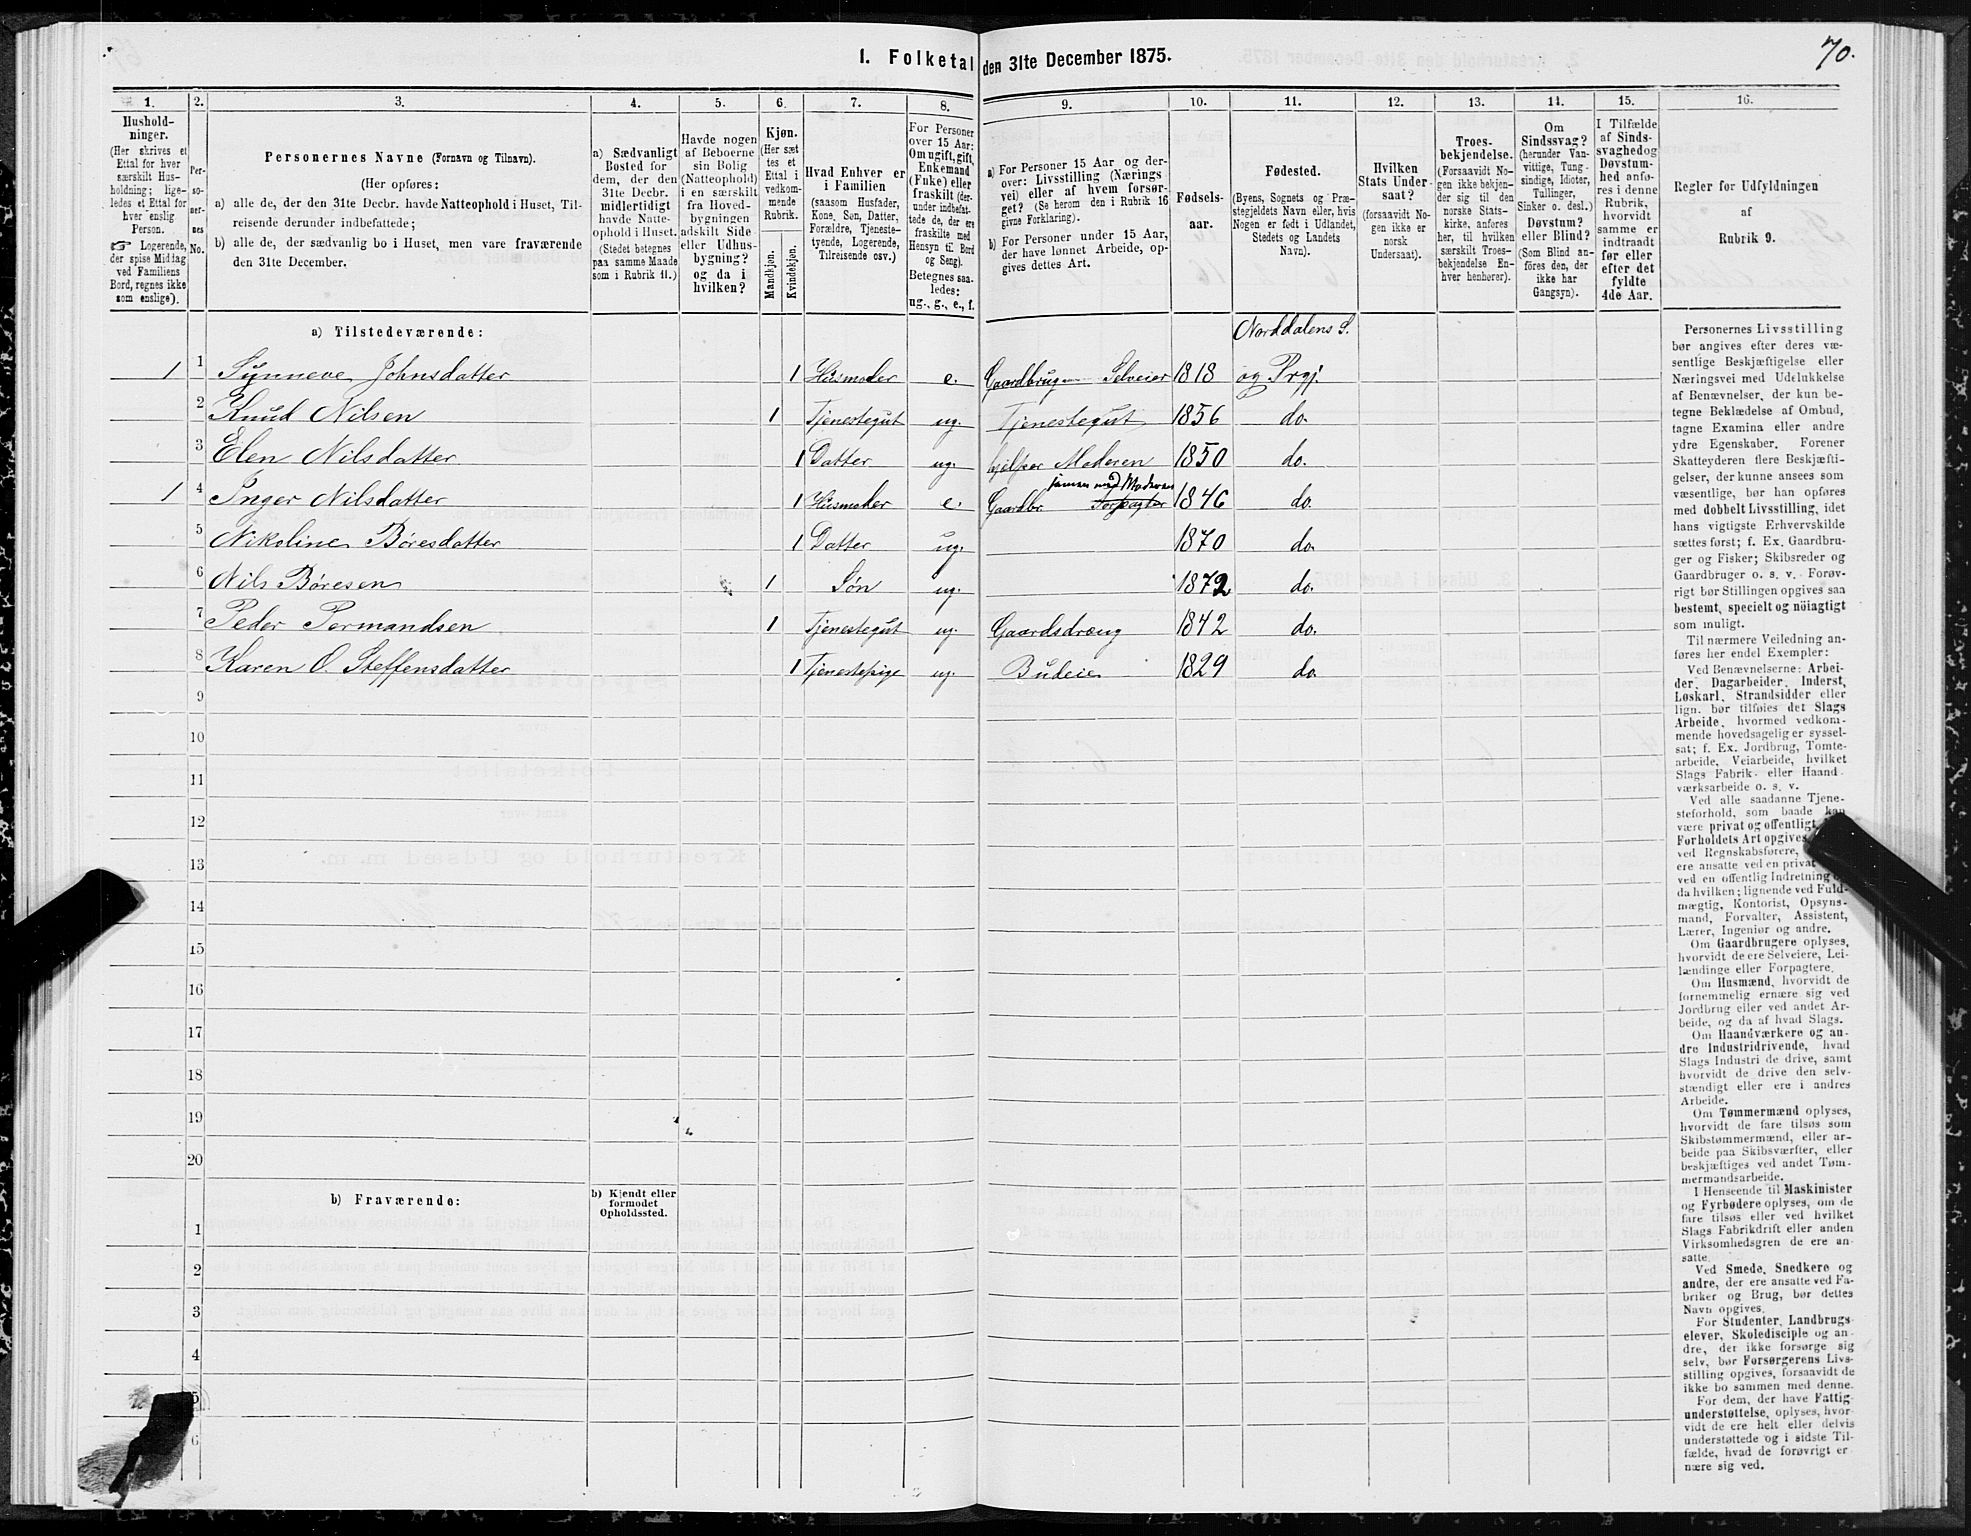 70.
1. Folketal den 31te December 1875.
1. 2. 3. 4. 5. 6. 7. 8. 9. 10. 11. 12. 13. 14. 15. 16.
Hushold-
ninger.
(Her skrives et
Ettal for hver
særskilt Hus-
holdning; lige-
ledes et Ettal for
hver enslig
Person.
☞ Logerende,
der spise Middag
ved Familiens
Bord, regnes ikke
som enslige).
Per-
so-
ner-
nes
No.
Personernes Navne (Fornavn og Tilnavn).
(Her opføres:
a) alle de, der den 31te Decbr. havde Natteophold i Huset, Til-
reisende derunder indbefattede;
b) alle de, der sædvanlig bo i Huset, men vare fraværende
den 31te December.
a) Sædvanligt
Bosted for
dem, der den
31te Decbr.
midlertidigt
havde Natte-
ophold i Huset.
(Stedet betegnes
paa samme Maade
som i Rubrik 11.)
Havde nogen
af Beboerne
sin Bolig
(Natteophold)
i en særskilt
fra Hoved-
bygningen
adskilt Side-
eller Udhus-
bygning?
og da i
hvilken?
Kjøn.
(Her sæt-
tes et
Ettal i
vedkom-
mende
Rubrik.
Mandkjøn.
Kvindekjøn.
Hvad Enhver er
i Familien
(saasom Husfader,
Kone, Søn, Datter,
Forældre, Tjeneste-
tyende, Logerende,
Tilreisende osv.)
For Personer
over 15 Aar:
Om ugift, gift,
Enkemand
(Enke) eller
fraskilt (der-
under indbefat-
tede de, der ere
fraskilte med
Hensyn til Bord
og Seng).
Betegnes saa-
ledes:
ug., g., e., f.
a) For Personer 15 Aar og der-
over: Livsstilling (Nærings
vei) eller af hvem forsør-
get? (Se herom den i Rubrik 16
givne Forklaring).
b) For Personer under 15 Aar,
der have lønnet Arbeide, op-
gives dettes Art.
Fødsels-
aar.
Fødested.
(Byens, Sognets og Præ-
stegjeldets Navn eller, hvis
Nogen er født i Udlandet,
Stedets og Landets
Navn).
Hvilken
Stats Under-
saat?
(forsaavidt No-
gen ikke er
norsk
Undersaat).
Troes-
bekjendelse.
(Forsaavidt No-
gen ikke bekjen-
der sig til den
norske Stats-
kirke, anføres
her, til hvilken
særskilt Troes-
bekjendelse En-
hver henhører).
Om
Sindssvag?
(herunder Van-
vittige, Tung-
sindige, Idioter,
Tullinger,
Sinker o. desl.)
Døvstum?
eller Blind?
(Som Blind an-
føres den, der
ikke har
Gangsyn).
I Tilfælde
af Sinds-
svaghed og
Døvstum-
hed anfø-
res i denne
Rubrik,
hvorvidt
samme er
indtraadt
før eller
efter det
fyldte
4de Aar.
Regler for Udfyldningen
af
Rubrik 9.
a) Tilstedeværende: Norddalens S.
1 1 Synneve Johnsdatter 1 Husmoder e. Gaardbrug Selveier 1818 og Prgj.
2 Knud Nilsen 1 Tjenestegut ug. Tjenestegut 1856 do.
3 Elen Nilsdatter 1 Datter ug. hjelper Moderen 1850 do.
1 4 Inger Nilsdatter 1 Husmoder e. Gaardbr. Forpagter sammen med Moderen 1846 do.
5 Nikoline Børesdatter 1 Datter ug. 1870 do.
6 Nils Børesen 1 Søn ug. 1872 do.
7 Peder Permandsen 1 Tjenestegut ug. Gaardsdræng 1842 do.
8 Karen O. Steffensdatter 1 Tjenestepige ug. Budeie 1829 do.
9
10
11
12
13
14
15
16
17
18
19
20
b) Fraværende: b) Kjendt eller
formodet
Opholdssted.
1
2
3
4
5
6
Personernes Livsstilling
bør angives efter deres væ-
sentlige Beskjæftigelse eller
Næringsvei med Udelukkelse
af Benævnelser, der kun be-
tegne Beklædelse af Ombud,
tagne Examina eller andre
ydre Egenskaber. Forener
Skatteyderen flere Beskjæfti-
gelser, der kunne ansees som
væsentlige, bør han opføres
med dobbelt Livsstilling, idet
hans vigtigste Erhvervskilde
sættes først; f. Ex. Gaardbru-
ger og Fisker; Skibsreder og
Gaardbruger o. s. v. Forøv-
rigt bør Stillingen opgives saa
bestemt, specielt og nöiagtigt
som muligt.
Til nærmere Veiledning an-
føres her endel Exempler:
Ved Benævnelserne: Arbei-
der, Dagarbeider, Inderst,
Løskarl, Strandsidder eller
lign. bør tilføies det Slags
Arbeide, hvormed vedkom-
mende hovedsagelig er syssel-
sat; f. Ex. Jordbrug, Tomte-
arbeide, Veiarbeide, hvilket
Slags Fabrik- eller Haand
værksarbeide o. s. v.
Ved alle saadanne Tjene-
steforhold, som baade kan
være privat og offentligt,
Forholdets Art opgives
ved Regnskabsførere,
ere ansatte ved en privat
ved en offentlig Indretning
da hvilken; lignende ved Fuld-
mægtig, Kontorist, Opsyns-
mand, Forvalter, Assistent,
Lærer, Ingeniør og andre.
Om Gaardbrugere oplyses,
hvorvidt de ere Selveiere, Lei-
lændinge eller Forpagtere.
Om Husmænd, hvorvidt de
fornemmelig ernære sig ved
Jordbrug eller ved andet Ar-
beide, og da af hvad Slags.
Om Haandværkere og an-
dre Industridrivende, hvad
Slags Industri de drive, samt
hvorvidt de drive den selv-
stændigt eller ere i andres
Arbeide.
Om Tømmermænd oplyses,
hvorvidt de fare tilsøs som
Skibstømmermænd, eller ar-
beide paa Skibsværfter, eller
beskjæftiges ved andet Tøm-
mermandsarbeide.
I Henseende til Maskinister
og Fyrbødere oplyses, om de
fare tilsøs eller ved hvilket
Slags Fabrikdrift eller anden
Virksomhedsgren de ere an-
satte.
Ved Smede, Snedkere og
andre, der ere ansatte ved Fa-
briker og Brug, bør dettes
Navn opgives.
For Studenter, Landbrugs-
elever, Skoledisciple og an-
dre, der ikke forsørge sig
selv, bør Forsørgerens Livs-
stilling opgives, forsaavidt de
ikke bo sammen med denne.
For dem, der have Fattig-
understøttelse, oplyses, hvor-
vidt de ere helt eller delvis
understøttede og i sidste Til-
fælde, hvad de forøvrigt er-
nære sig ved.